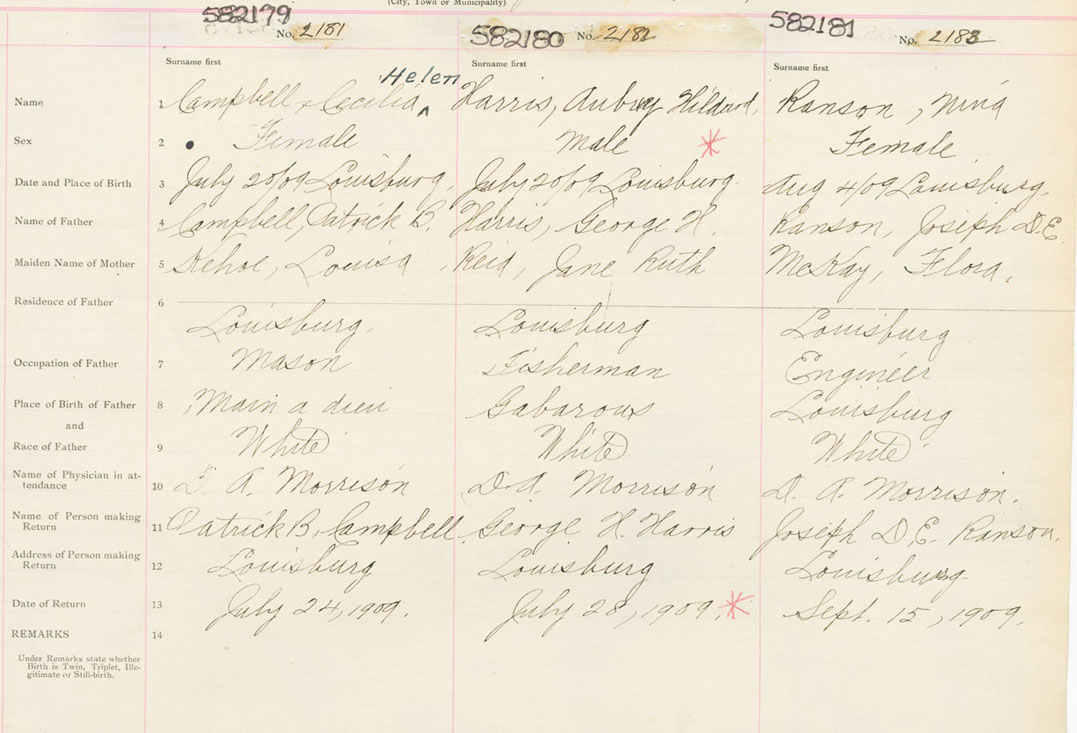 (City, Town or Municipality)
582179 No. 2181 582180 No. 2182 582181 No. 2183
Surname first Surname first Surname first
Helen
Name 1 Campbell, Cecilia ^ Harris, Aubrey Hildred, Ranson, Nina
Sex 2 Female Male * Female
Date and Place of Birth 3 July 20/09 Louisburg. July 20/09 Louisburg. Aug 4/09 Louisburg.
Name of Father 4 Campbell, Patrick B. Harris, George H. Ranson, Joseph D.E.
Maiden Name of Mother 5 Kehoe, Louisa Reid, Jane Ruth McKay, Flora.
Residence of Father 6
Louisburg. Louisburg Louisburg
Occupation of Father 7 Mason Fisherman Engineer
Place of Birth of Father 8 Main a dieu Gabarous Louisburg
and
Race of Father 9 White White White
Name of Physician in at-
tendance 10 D. A. Morrison D. A. Morrison D. A. Morrison.
Name of Person making
Return 11 Patrick B. Campbell George H. Harris Joseph D. E. Ranson.
Address of Person making
Return 12 Louisburg Louisburg Louisburg
Date of Return 13 July 24, 1909. July 28, 1909. * Sept. 15, 1909.
REMARKS 14
Under Remarks state whether
Birth is Twin, Triplet, Ille-
gitimate or Still-birth.